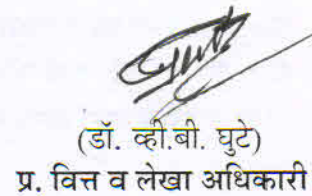 (डॉ. व्ही.बी. घुटे)
प्र. वित्त व लेखा अधिकारी